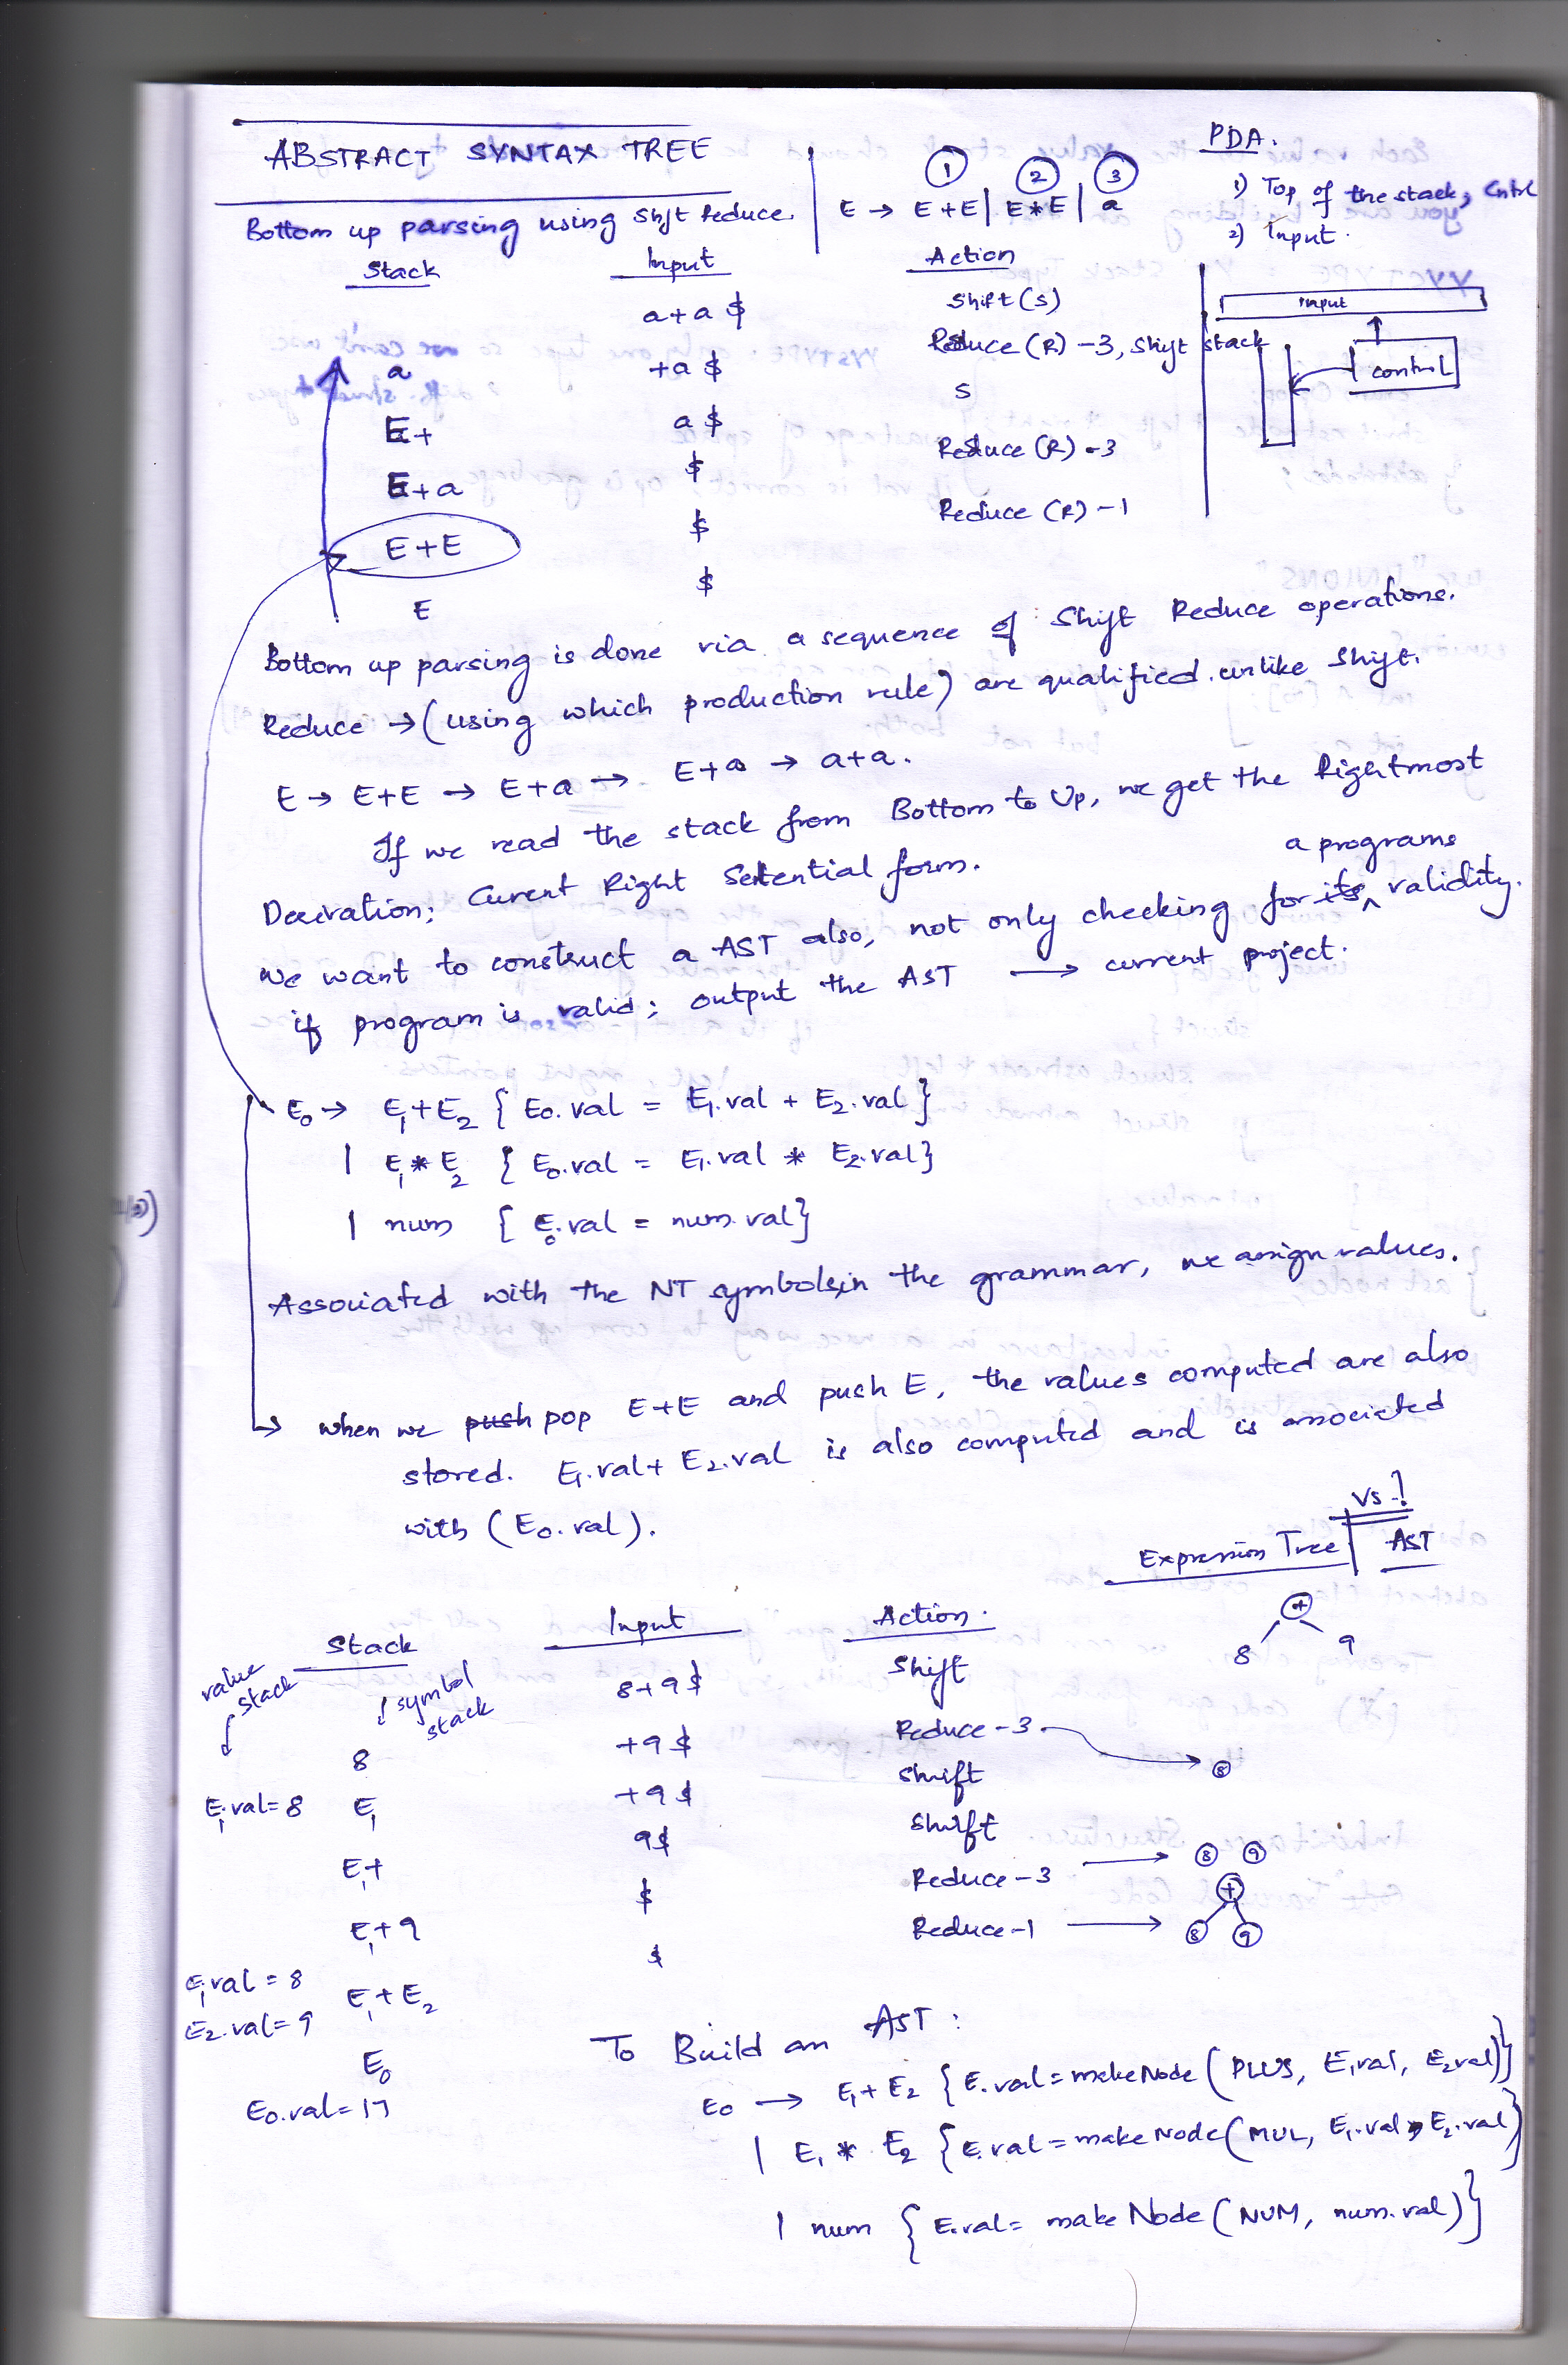 ABSTRACT SYNTAX TREE
① ② ③
E → E+E | E*E | a
PDA.
1) Top of the stack, Cntrl
2) Input.
Bottom up parsing using Shift Reduce.
Stack Input Action
a+a $ Shift (S)
a +a $ Reduce (R) -3, Shift stack
E+ a $ S
E+a $ Reduce (R) -3
E+E $ Reduce (R) -1
E $
input
control
Bottom up parsing is done via a sequence of Shift Reduce operations.
Reduce → (using which production rule) are qualified unlike Shift.
E → E+E → E+a → E+a → a+a.
If we read the stack from Bottom to Up, we get the Rightmost
Derivation; Curent Right Setential form.
We want to construct a AST also, not only checking for its a programs validity.
if program is valid; output the AST → current project.
E0 → E1+E2 { E0.val = E1.val + E2.val }
| E1*E2 { E0.val = E1.val * E2.val}
| num { E0.val = num.val}
Associated with the NT symbols,in the grammar, we assign values.
when we push pop E+E and push E, the values computed are also
stored. E1.val+ E2.val is also computed and is associated
with (E0.val).
Vs.?
Expression Tree | AST
+
8 9
Stack Input Action.
value stack symbol stack
8+9$ Shift
8 +9 $ Reduce-3 → 8
E1.val=8 E1 +9 $ Shift
E1+ 9$ Shift
E1+9 $ Reduce-3 → 8 9
E1.val = 8
E2.val=9 E1+E2 $ Reduce-1 → + 8 9
E0
E0.val=17
To Build an AST :
E0 → E1+E2 { E.val=makeNode (PLUS, E1val, E2val)}
| E1 * E2 { E.val=makeNode (MUL, E1.val, E2.val)}
| num { E.val= makeNode (NUM, num.val)}